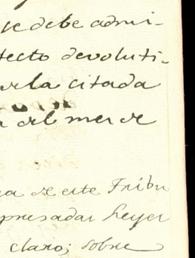 se debe admi-
fecto devoluti-
la citada
del mes de
a de este Tribu
presadas Leyes
claro; sobre